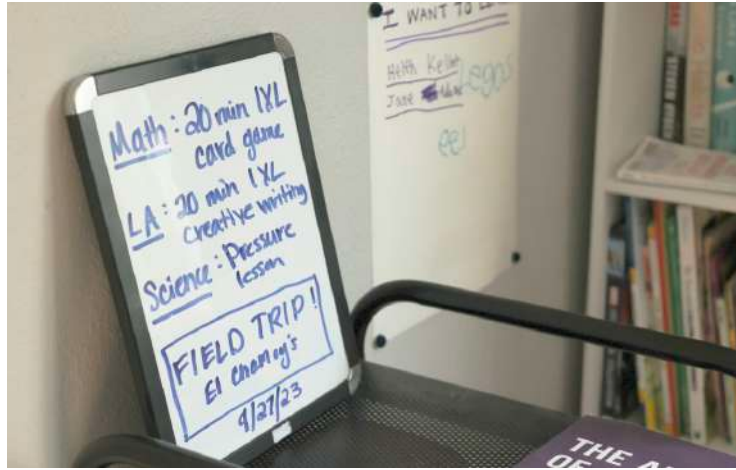 Math: 20 min IXL
card game
LA: 20 min IXL
creative writing
Science: Pressure
lesson
FIELD TRIP!
El
I WANT TO
Kell
Legos
Jane
eel
THE A
OF